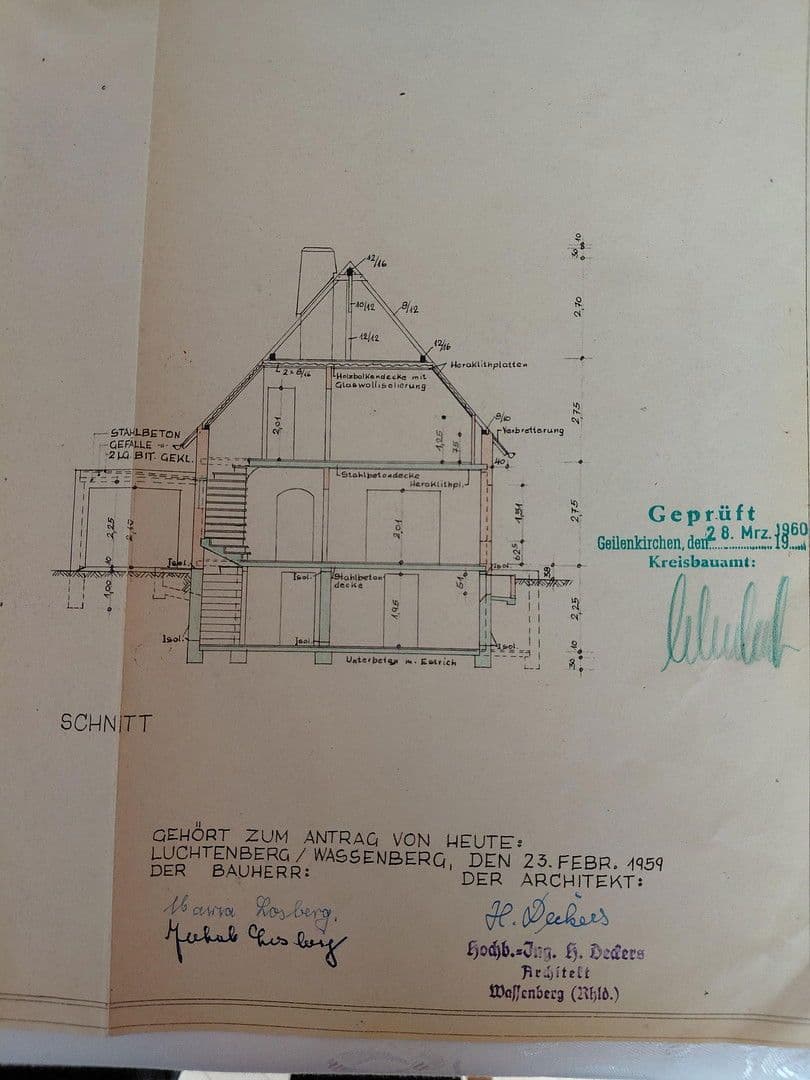 12/16
10/12
8/12
12/12
12/16
Heraklithplatten
2 x 8/16
Holzbalkendecke mit
Glaswollisolierung
2,01
1,25
75
8/10
Verbretterung
40
STAHLBETON
GEFÄLLE
2 LG BIT. GEKL.
Stahlbetondecke
Heraklithpl.
2,25
2,10
10
2,01
1,51
625
Isol.
Isol.
Stahlbeton
decke
Isol.
51
38
1,00
1,95
Isol.
Isol.
Isol.
Unterbeton m. Estrich
30
10
2,70
2,75
2,75
2,25
10
30
Geprüft
Geilenkirchen, den 28. Mrz. 1960
19
Kreisbauamt:
SCHNITT
GEHÖRT ZUM ANTRAG VON HEUTE:
LUCHTENBERG / WASSENBERG, DEN 23. FEBR. 1959
DER BAUHERR: DER ARCHITEKT:
H. Deckers
Hochb.-Ing. H. Deckers
Architekt
Wassenberg (Rhld.)